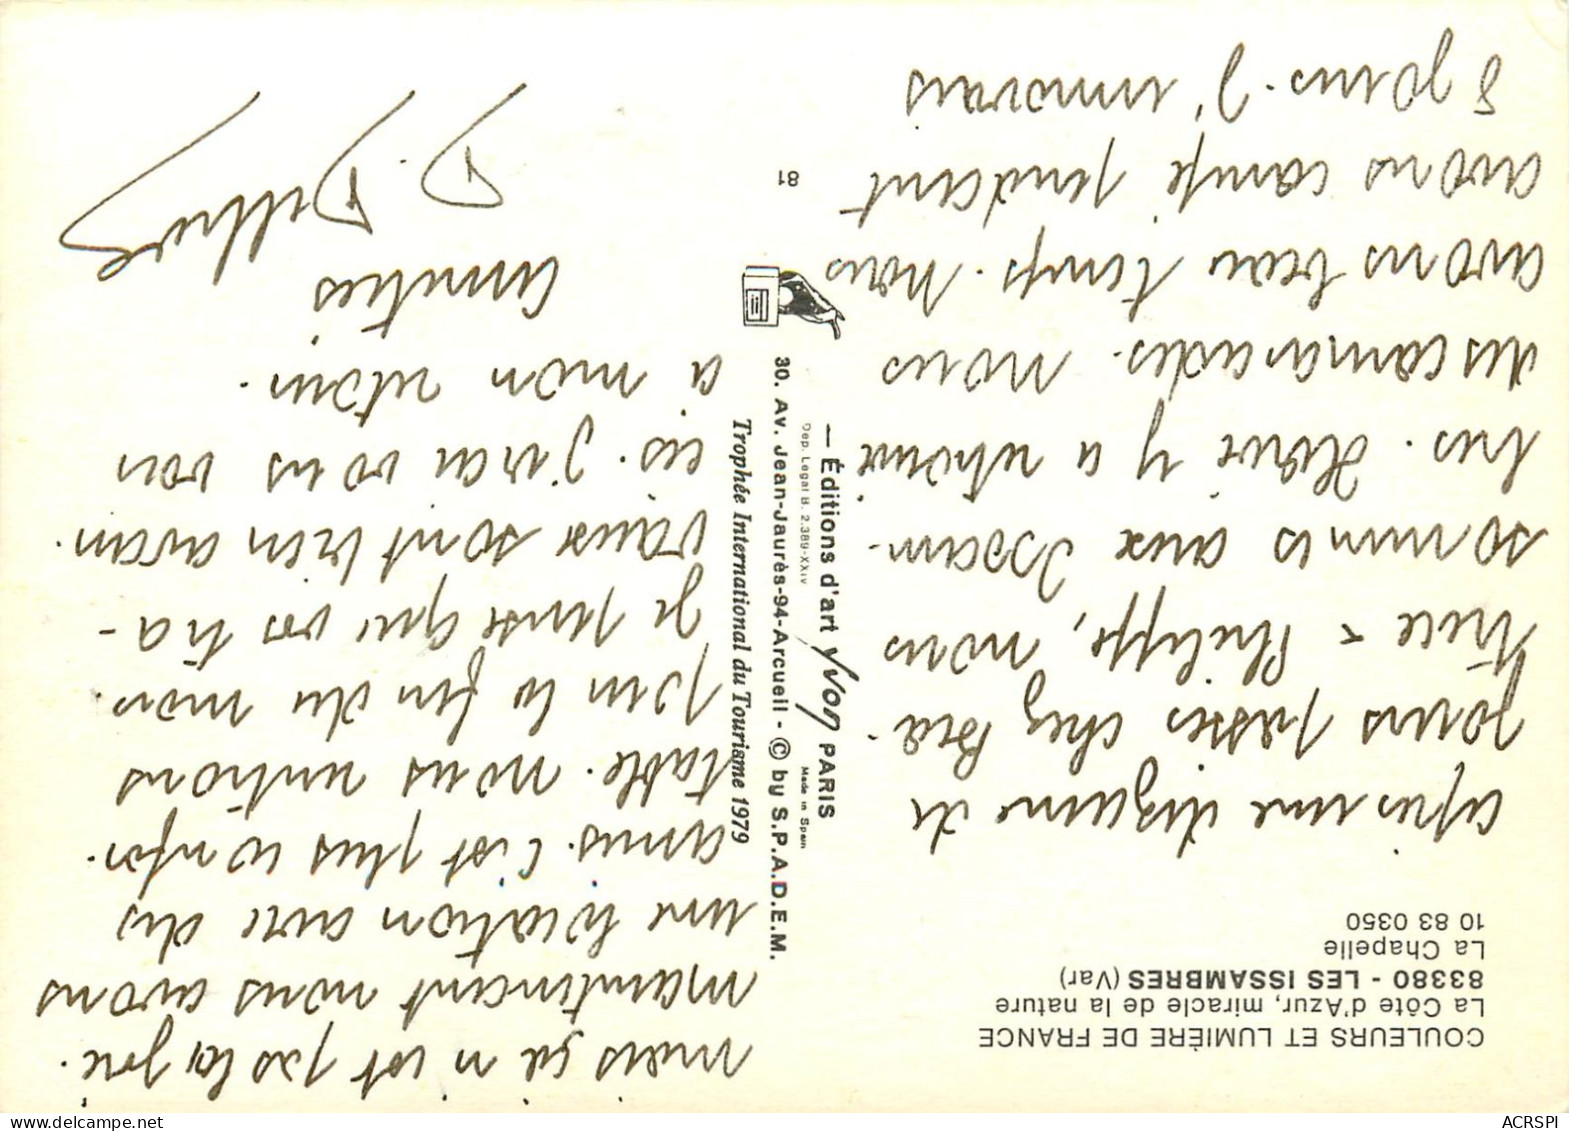 COULEURS ET LUMIÈRE DE FRANCE
La Côte d'Azur, miracle de la nature
83380 - LES ISSAMBRES (Var)
La Chapelle
10 83 0350
après une dizaine de
jours passés chez Béa
trice & Philippe, nous
sommes aux Issam-
bres. Hervé y a retrouvé
des camarades. nous
avons beau temps. nous
avons campé pendant
8 jours. J'
mais ça n'est pas la joie.
maintenant nous avons
une location avec des
amis. c'est plus confor-
table. nous rentrons
pour la fin du mois.
Je pense que vos tra-
vaux sont bien avan-
cés. J'irai vous voir
à mon retour.
amitiés
D.
— Éditions d'art YVON PARIS
Dep. Legal B. 2.389-XXIV
Made in Spain
30. Av. Jean-Jaurès-94-Arcueil - © by S.P.A.D.E.M.
Trophée International du Tourisme 1979
81
ACRSPI